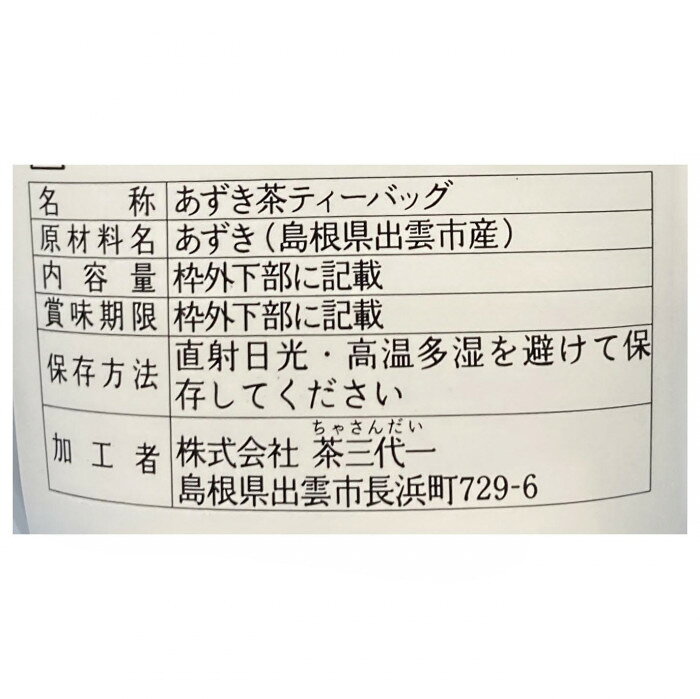 名称 あずき茶ティーバッグ
原材料名 あずき(島根県出雲市産)
内容量 枠外下部に記載
賞味期限 枠外下部に記載
保存方法 直射日光・高温多湿を避けて保
存してください
ちゃさんだい
加工者 株式会社 茶三代一
島根県出雲市長浜町729-6